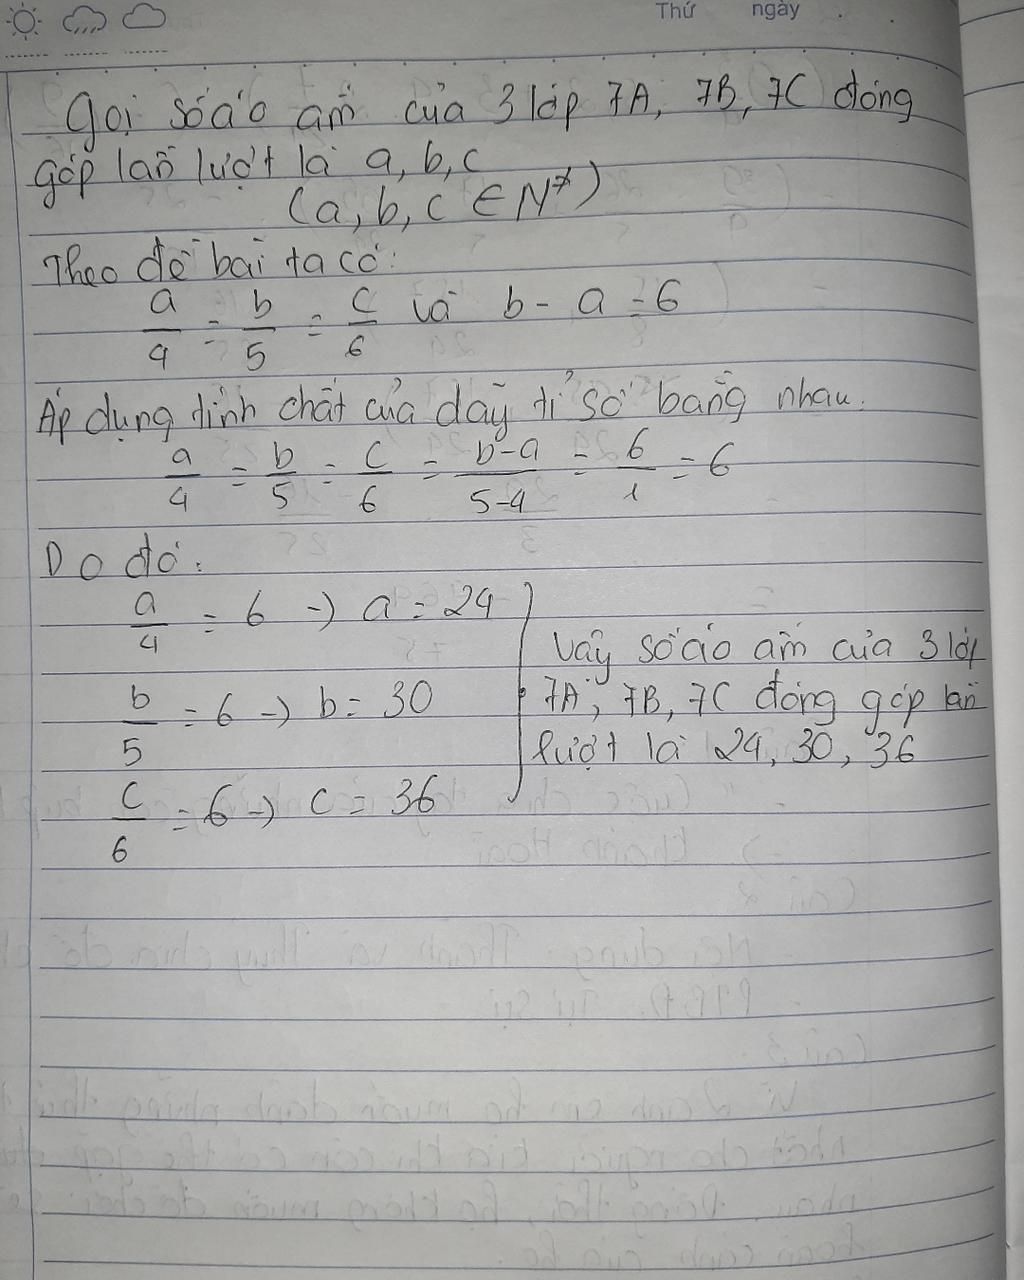 Thứ ngày
Gọi số áo ấm của 3 lớp 7A, 7B, 7C đóng
góp lần lượt là a, b, c
(a, b, c ∈ N*)
Theo đề bài ta có:
a/4 = b/5 = c/6 và b - a = 6
Áp dụng tính chất của dãy tỉ số bằng nhau.
a/4 = b/5 = c/6 = b-a/5-4 = 6/1 = 6
Do đó:
a/4 = 6 -) a = 24
b/5 = 6 -) b = 30
c/6 = 6 -) c = 36
Vậy số áo ấm của 3 lớp
7A, 7B, 7C đóng góp lần
lượt là 24, 30, 36